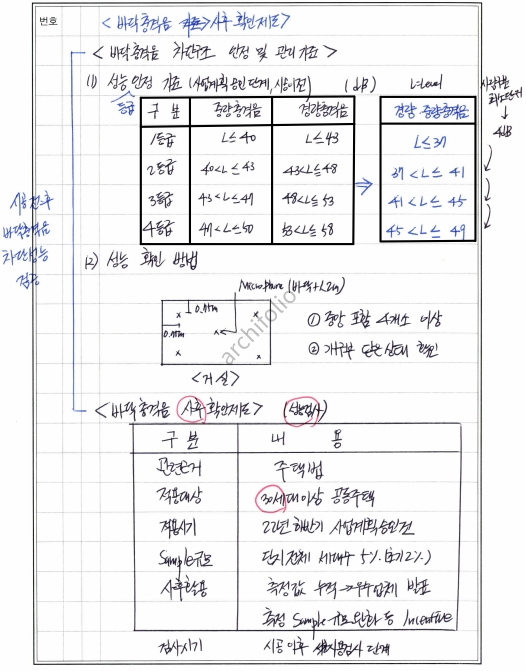 번호
< 바닥충격음 사후 확인제도 >
< 바닥충격음 차단구조 인정 및 관리기준 >
(1) 성능 인정 기준 (사업계획승인 단계, 시공이전) (dB)
등급
L-Level
구 분 중량충격음 경량충격음 경량, 중량충격음
1등급 L≤40 L≤43 L≤37
2등급 40<L≤43 43<L≤48 37<L≤41
3등급 43<L≤47 48<L≤53 41<L≤45
4등급 47<L≤50 53<L≤58 45<L≤49
4dB
시공 전·후
바닥충격음
차단성능
검증
(2) 성능 확인 방법
Microphone (바닥+1.2m)
0.75m
0.75m
① 중앙 포함 4개소 이상
② 개구부 닫은 상태 확인
<거 실>
archifolio
< 바닥충격음 사후확인제도 > (성능검사)
구 분 내 용
관련근거 주택법
적용대상 30세대이상 공동주택
적용시기 22년 하반기 사업계획승인건
Sample규모 단지전체 세대수 5% (초기2%)
사후활용 측정값 누적 → 우수업체 발표
측정 Sample 규모 완화 등 Incentive
검사시기 시공이후 사용검사 단계